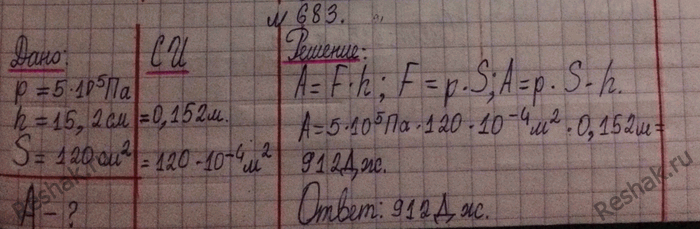 № 683.
Дано:
p = 5·10⁵Па
h = 15,2см
S = 120см²
A - ?
СИ
=0,152м.
=120·10⁻⁴м²
Решение:
A = F·h; F = p·S; A = p·S·h.
A = 5·10⁵Па·120·10⁻⁴м²·0,152м=
912Дж.
Ответ: 912Дж.
Reshak.ru
Reshak.ru